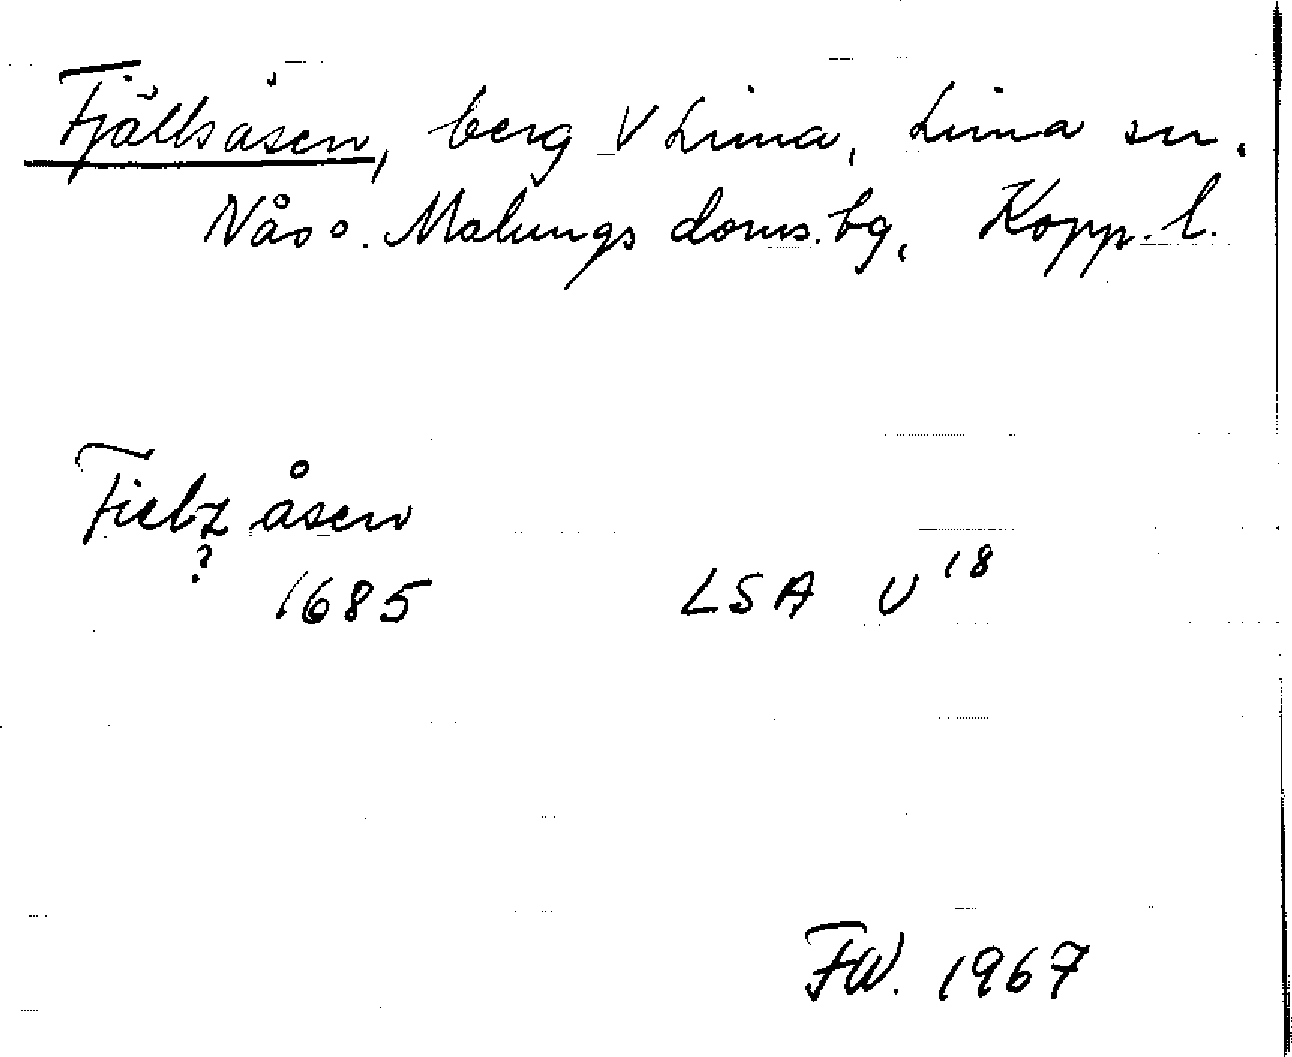 Fjällsåsen, berg V Lima, Lima sn.
Nås o. Malungs doms. bg, Kopp. l.
Fielz åsen
?
1685 LSA U 18
FW. 1967